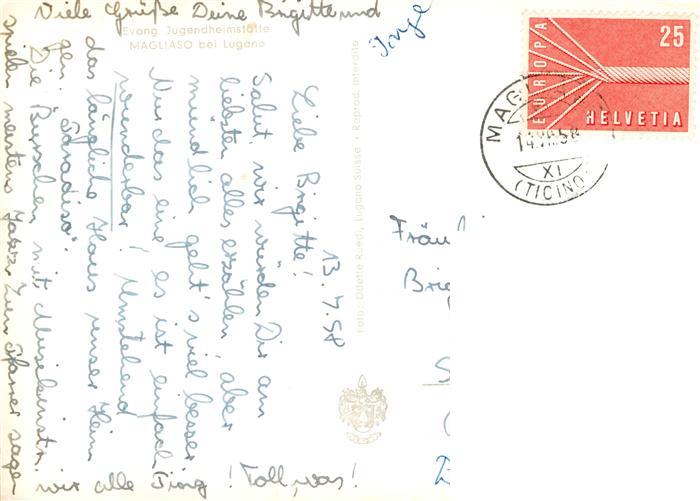 Evang. Jugendheimstätte
MAGLIASO bei Lugano
13.7.58
Liebe Brigitte!
Salut, wir würden Dir am
liebsten alles erzählen, aber
mündlich geht's viel besser
Nur das eine, es ist einfach
wunderbar! Umstehend
das längliche Haus unser Heim
gen. "Paradiso".
Die Burschen mit Musikinstr.
spielen meistens Jazz. Zum Pfarrer sagen
wir alle Tinz! Toll, was!
Viele Grüße Deine Brigitte und
Inge
Foto: Odette Ruedi, Lugano Suisse - Reprod. interdite
EUROPA
25
HELVETIA
MAG
14.VII.58
XI
(TICINO)
Fräul
Brig